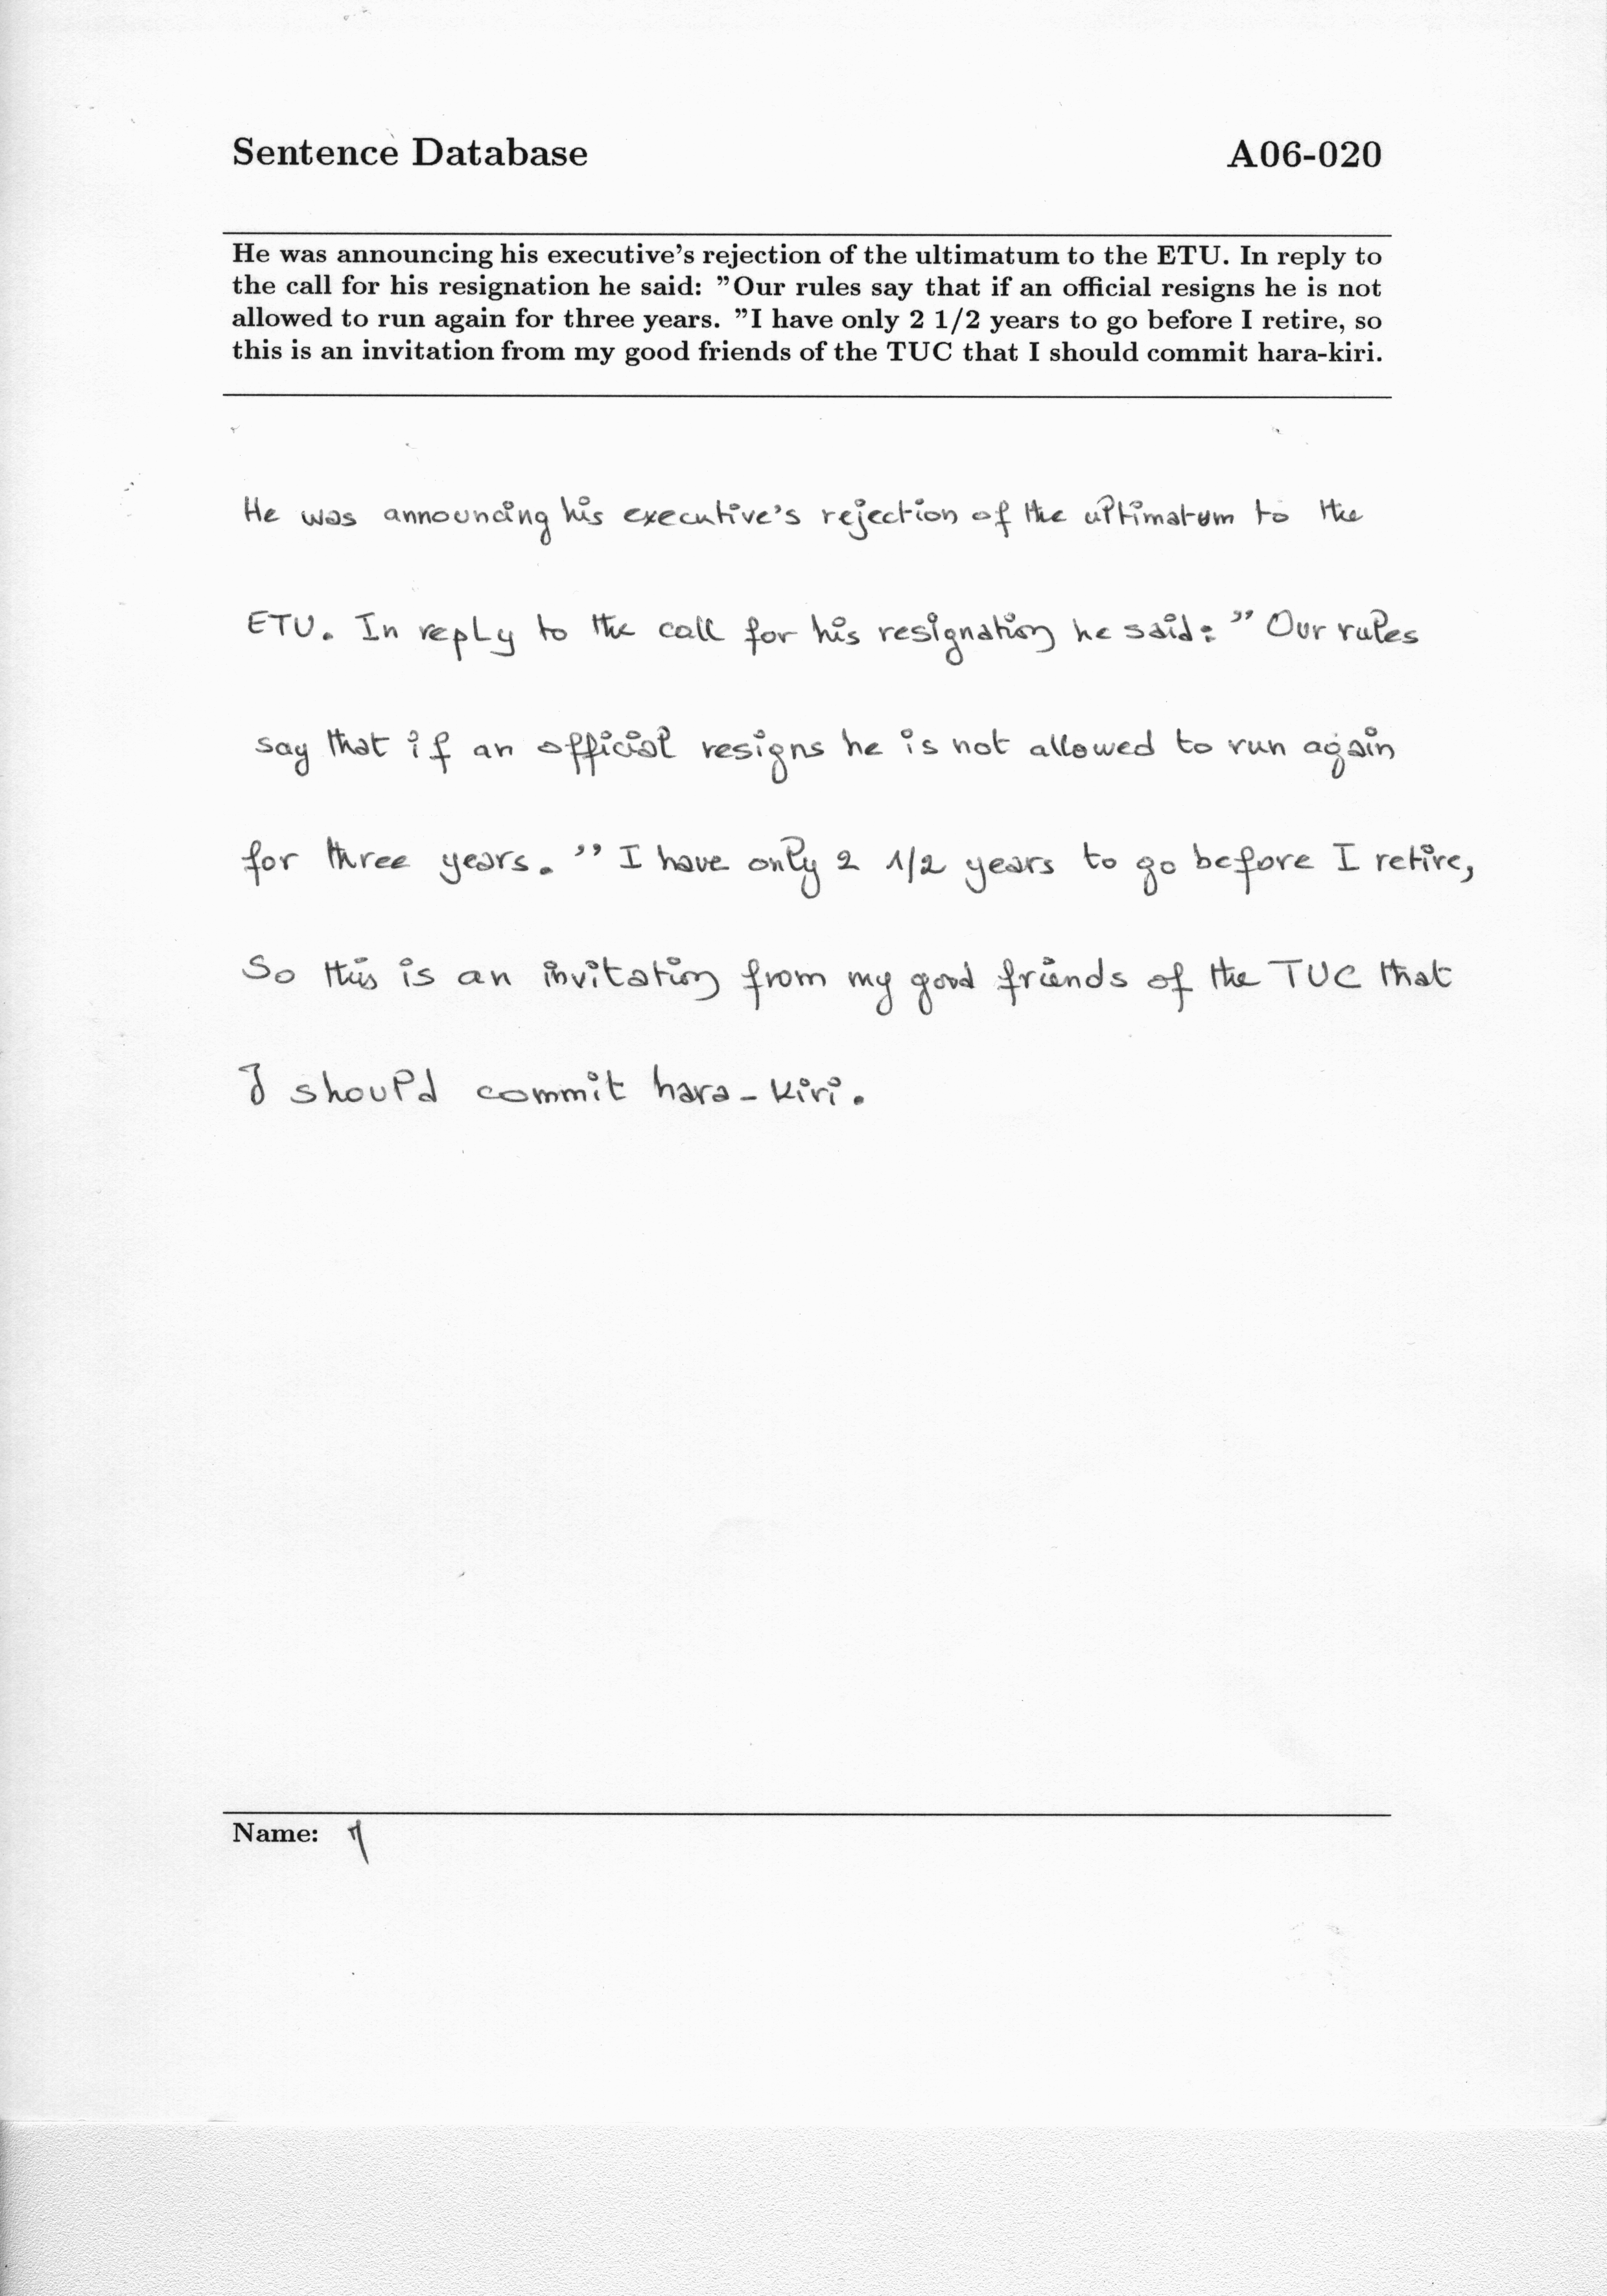 Sentence Database A06-020
He was announcing his executive's rejection of the ultimatum to the ETU. In reply to
the call for his resignation he said: "Our rules say that if an official resigns he is not
allowed to run again for three years. "I have only 2 1/2 years to go before I retire, so
this is an invitation from my good friends of the TUC that I should commit hara-kiri.
He was announcing his executive's rejection of the ultimatum to the
ETU. In reply to the call for his resignation he said: " Our rules
say that if an official resigns he is not allowed to run again
for three years. " I have only 2 1/2 years to go before I retire,
So this is an invitation from my good friends of the TUC that
I should commit hara-kiri.
Name: